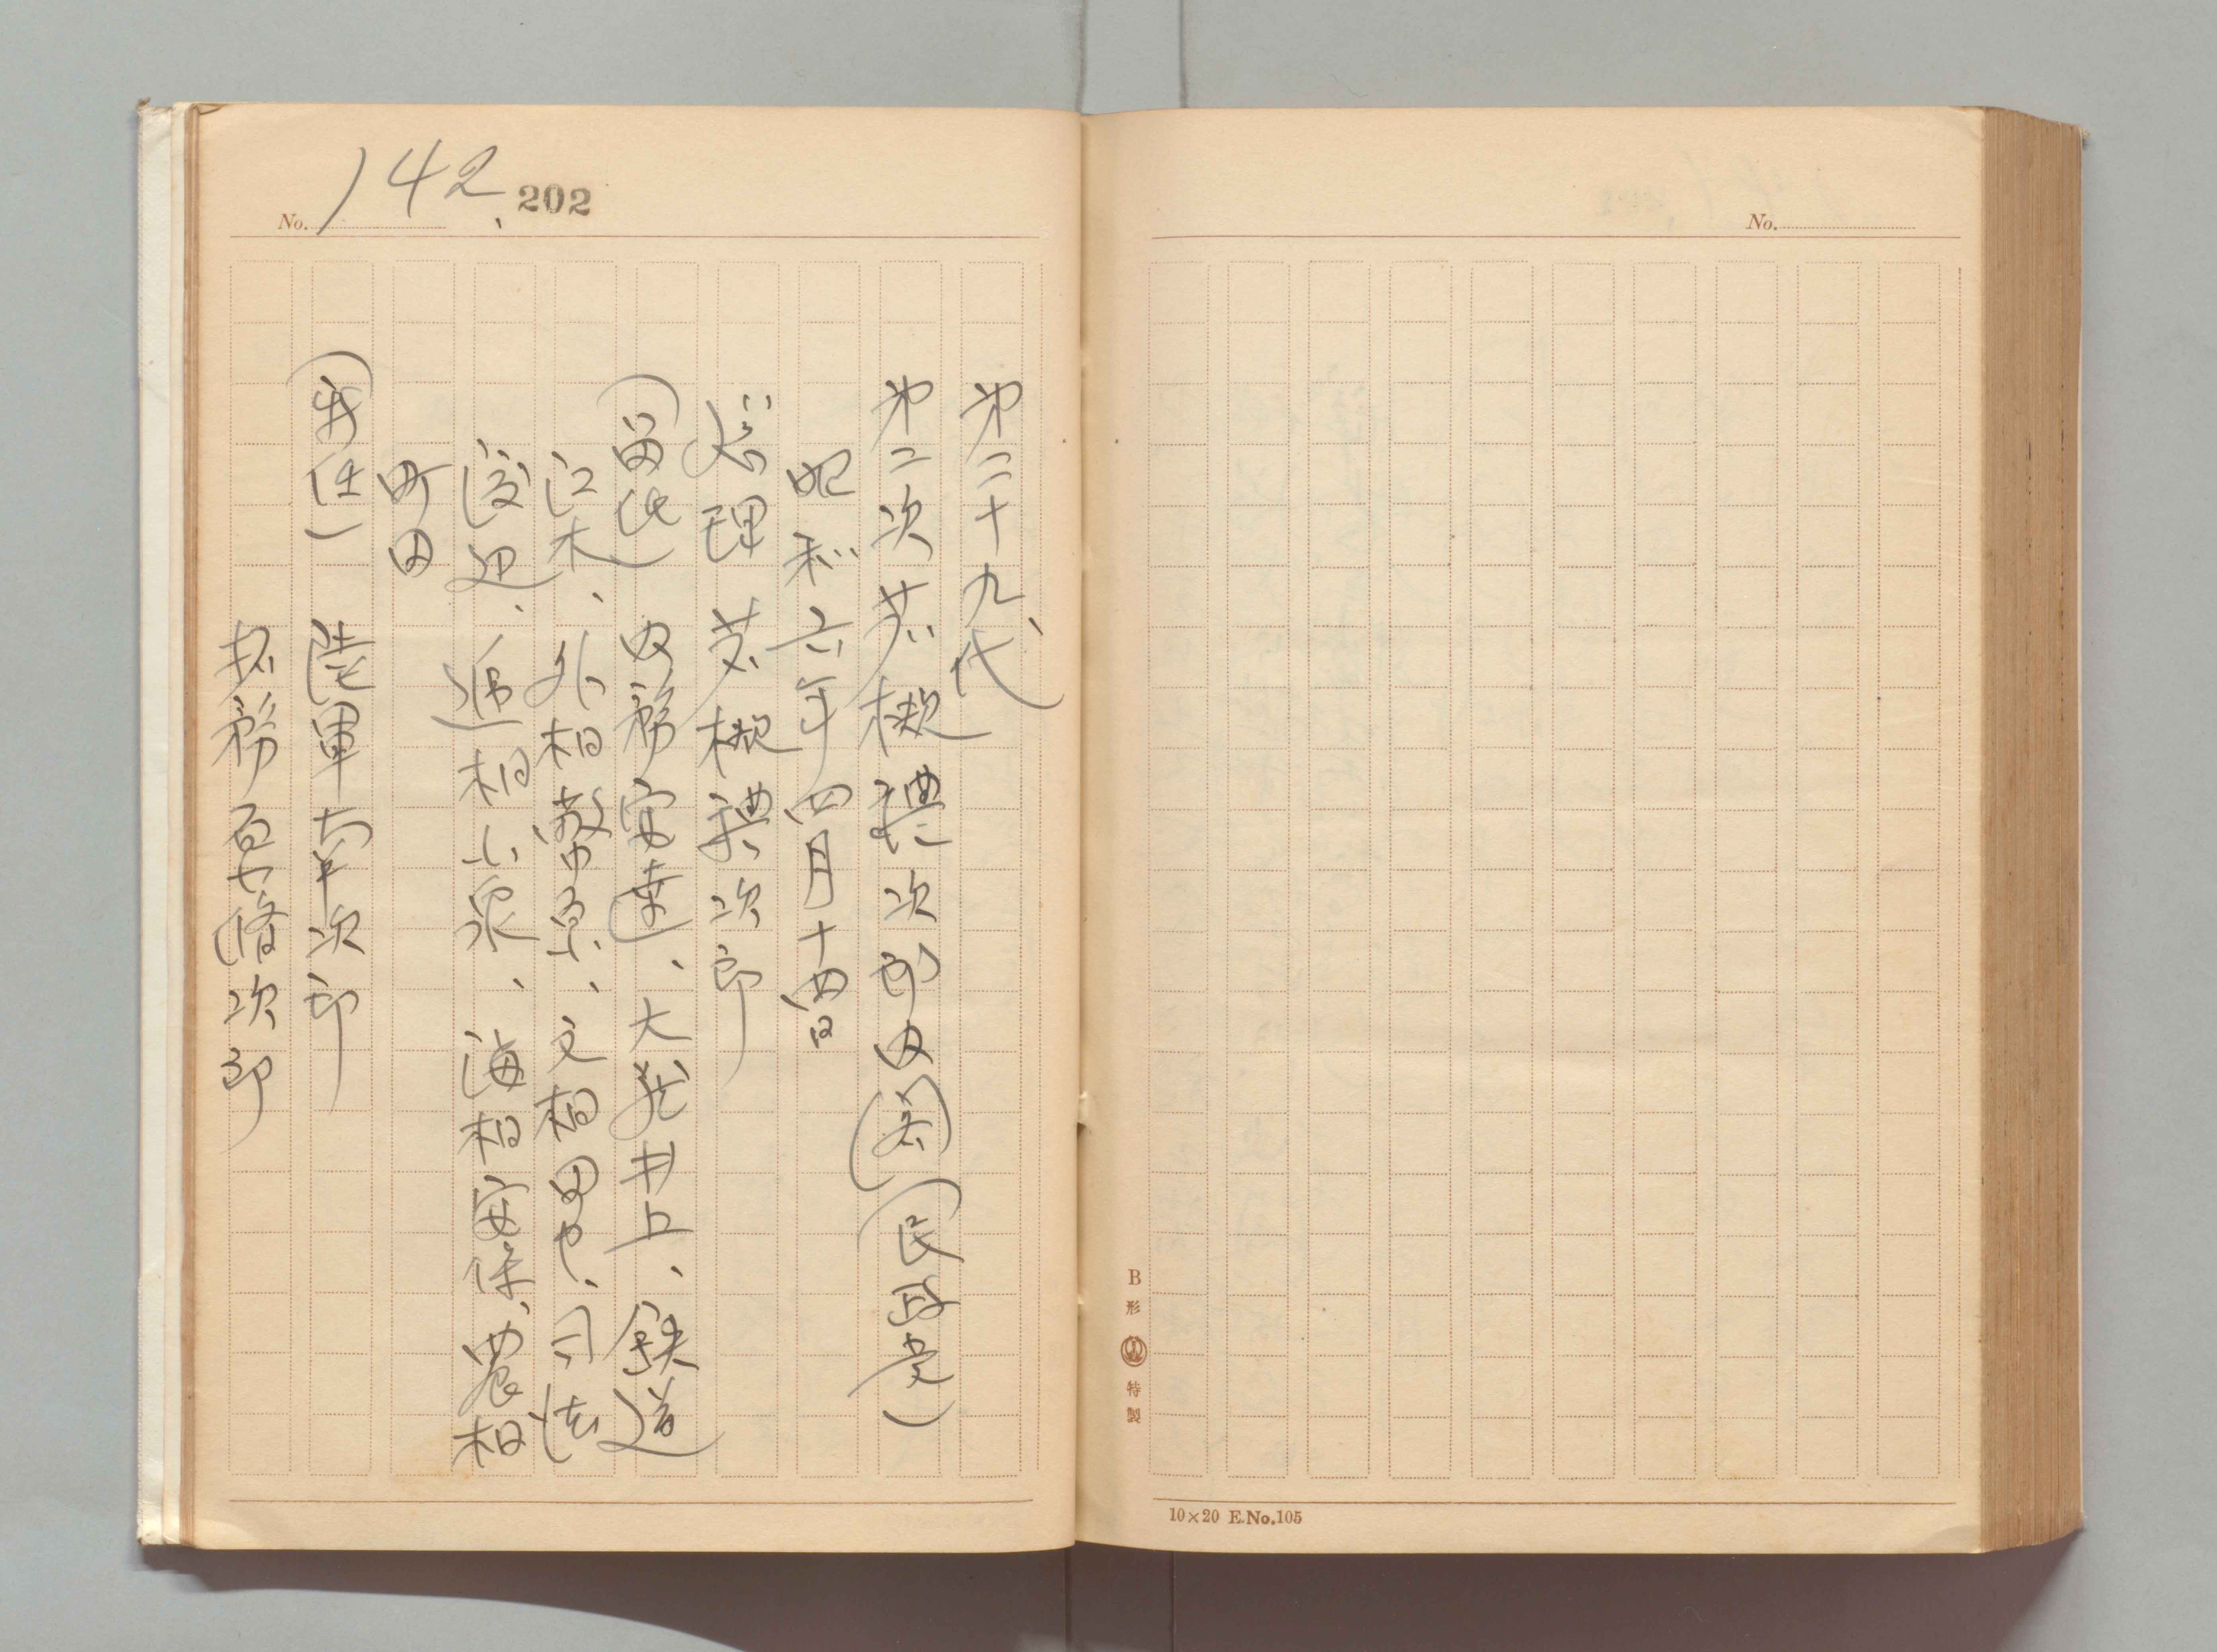 No. 142. 202
第二十九、代
第二次若槻禮次郎内閣(民政党)
昭和六年四月十四日
総理 若槻禮次郎
(留任) 内務安達、大蔵井上、鉄道
江木、外相幣原、文相田中、司法
渡辺、逓相小泉、海相安保、農相
町田
(新任) 陸軍南次郎
拓務原脩次郎
No.
B形 特製
10×20 E.No.105